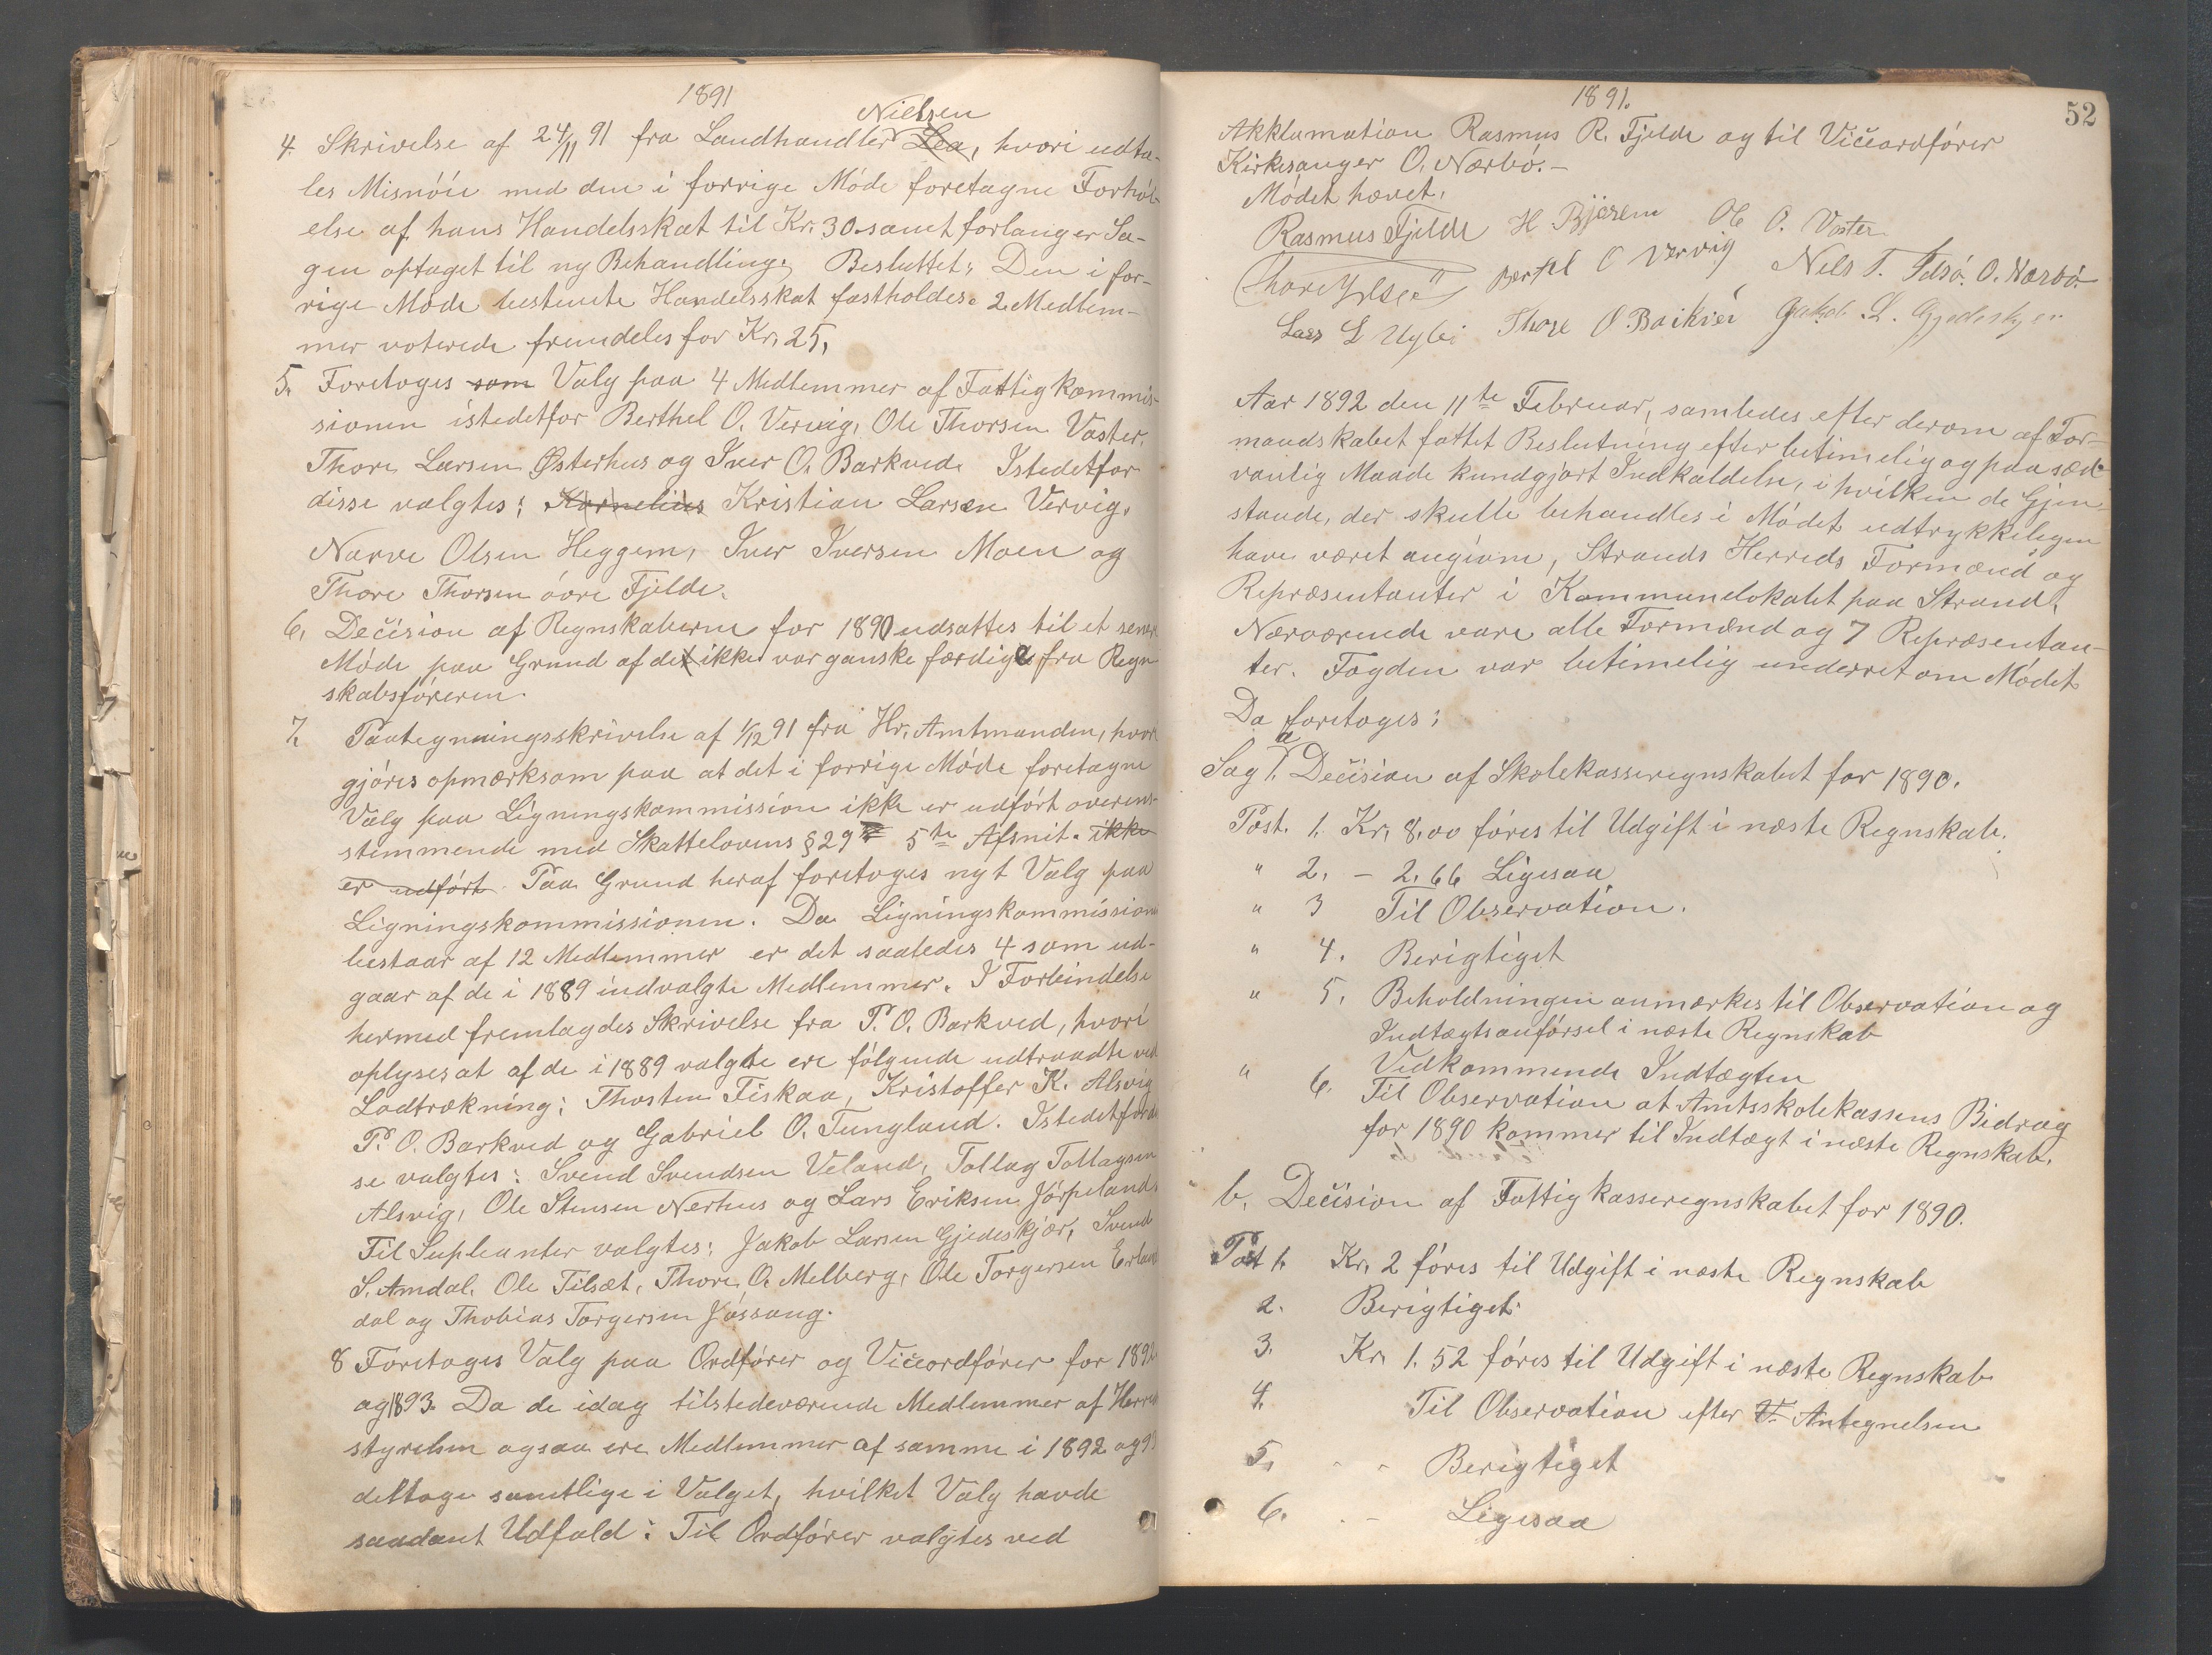 1891
Nielsen
4. Skrivelse af 24/11 91 fra Landhandler Lea, hvori udta-
les Misnöie med den i forrige Möde foretagne Forhöi-
else af hans Handelsskat til Kr. 30. samt forlanger Sa-
gen optaget til ny Behandling. Besluttet: Den i for-
rige Möde bestemte Handelsskat fastholdes. 2 Medlem-
mer voterede fremdeles for Kr. 25.
5. Foretoges som Valg paa 4 Medlemmer af Fattigkommis-
sionen istedetfor Berthel O. Vervig, Ole Thorsen Vaster,
Thore Larsen Østerhus og Iver O. Barkved. Istedetfor
disse valgtes: Kornelius Kristian Larsen Vervig,
Narve Olsen Heggem, Iver Iversen Moen og
Thore Thorsen övre Fjelde.
6. Decision af Regnskaberne for 1890 udsattes til et sener
Möde paa Grund af det ikke var ganske færdige fra Regn
skabsföreren.
7. Paategningsskrivelse af 1/12 91 fra Hr. Amtmanden, hvor
gjöres opmærksom paa at det i forrige Möde foretagne
Valg paa Ligningskommission ikke er udfört overens-
stemmende med Skattelovens § 29 5te Afsnit. ikke
er udfört. Paa Grund heraf foretoges nyt Valg paa
Ligningskommissionen. Da Ligningskommission
bestaar af 12 Medlemmer er det saaledes 4 som ud-
gaar af de i 1889 indvalgte Medlemmer. I Forbindelse
hermed fremlagdes Skrivelse fra P. O. Barkved, hvori
oplyses at af de i 1889 valgte ere fölgende udtraadte ved
Lodtrækning: Thosten Fiskaa, Kristoffer K. Alsvig
P. O. Barkved og Gabriel O. Tungland. Istedetfor dis
se valgtes: Svend Svendsen Veland, Tollag Tollagsen
Alsvig, Ole Stensen Nerhus og Lars Eriksen Jörpeland.
Til Supleanter valgtes: Jakob Larsen Gjedeskjær, Svend
S. Amdal, Ole Tilsæt, Thore O. Melberg, Ole Torgersen Erlan
dal og Thobias Torgersen Jössang.
8 Foretoges Valg paa Ordförer og Viceordförer for 1892
og 1893. Da de idag tilstedeværende Medlemmer af Herreds
styrelsen ogsaa ere Medlemmer af samme i 1892 og 93
deltoge samtlige i Valget, hvilket Valg havde
saadant Udfald: Til Ordförer valgtes ved
1891.
52
Akklamation Rasmus R. Fjelde og til Viceordförer
Kirkesanger O. Nærbö. -
Mödet hævet.
Rasmus Fjelde H Bjæren Ole O. Vaster
Bertel O Vervig Nels T. Idsö. O. Nærbö.
Lars L Uglei Thore O Barkved Jakob L. Gjedeskjær
Aar 1892 den 11te Februar, samledes efter derom af For-
mandskabet fattet Beslutning efter betimelig og paa sæd-
vanlig Maade kundgjort Indkaldelse, i hvilken de Gjen-
stande, der skulle behandles i Mödet udtrykkeligen
have været angivne, Strands Herreds Formænd og
Repræsentanter i Kommunelokalet paa Strand.
Nærværende vare alle Formænd og 7 Repræsentan-
ter. Fogden var betimelig underret om Mödet
Da foretoges:
Sag 1. a Decision af Skolekasseregnskabet for 1890.
Post. 1. Kr. 8.00 föres til Udgift i næste Regnskab.
" 2. - 2.66 Ligesaa
" 3 Til Observation.
" 4. Berigtiget
" 5. Beholdningen anmærkes til Observation og
Indtægtsanförsel i næste Regnskab
Vedkommende Indtægten
" 6. Til Observation at Amtsskolekassens Bidrag
for 1890 kommer til Indtægt i næste Regnskab.
b. Decision af Fattigkasseregnskabet for 1890.
Post 1. Kr. 2 föres til Udgift i næste Regnskab
2. Berigtiget.
3. Kr. 1.52 föres til Udgift i næste Regnskab
4. Til Observation efter V. Antegnelsen
5. - - Berigtiget
6. - - Ligesaa